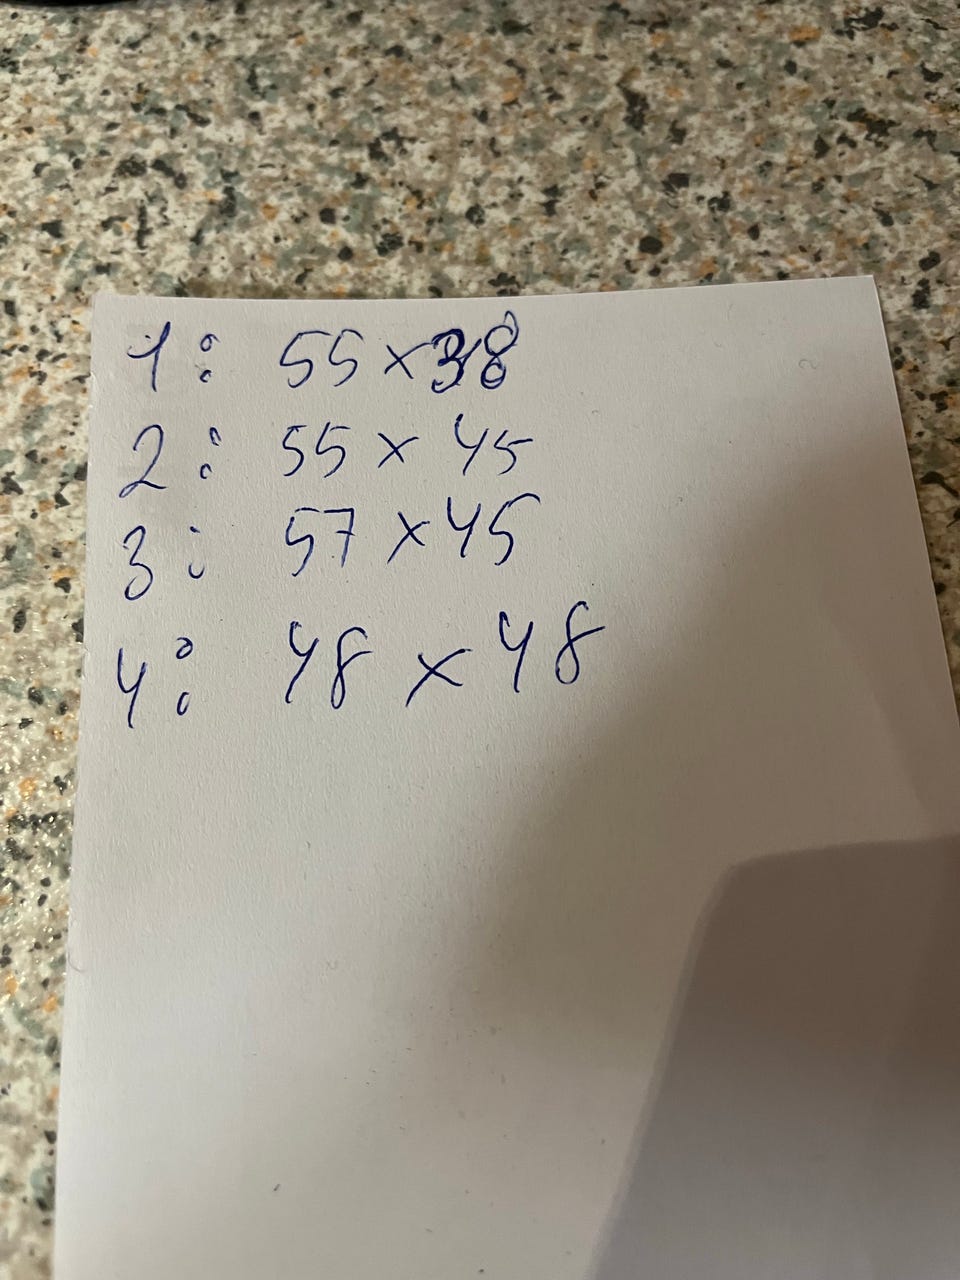 1: 55 x 38
2: 55 x 45
3: 57 x 45
4: 48 x 48